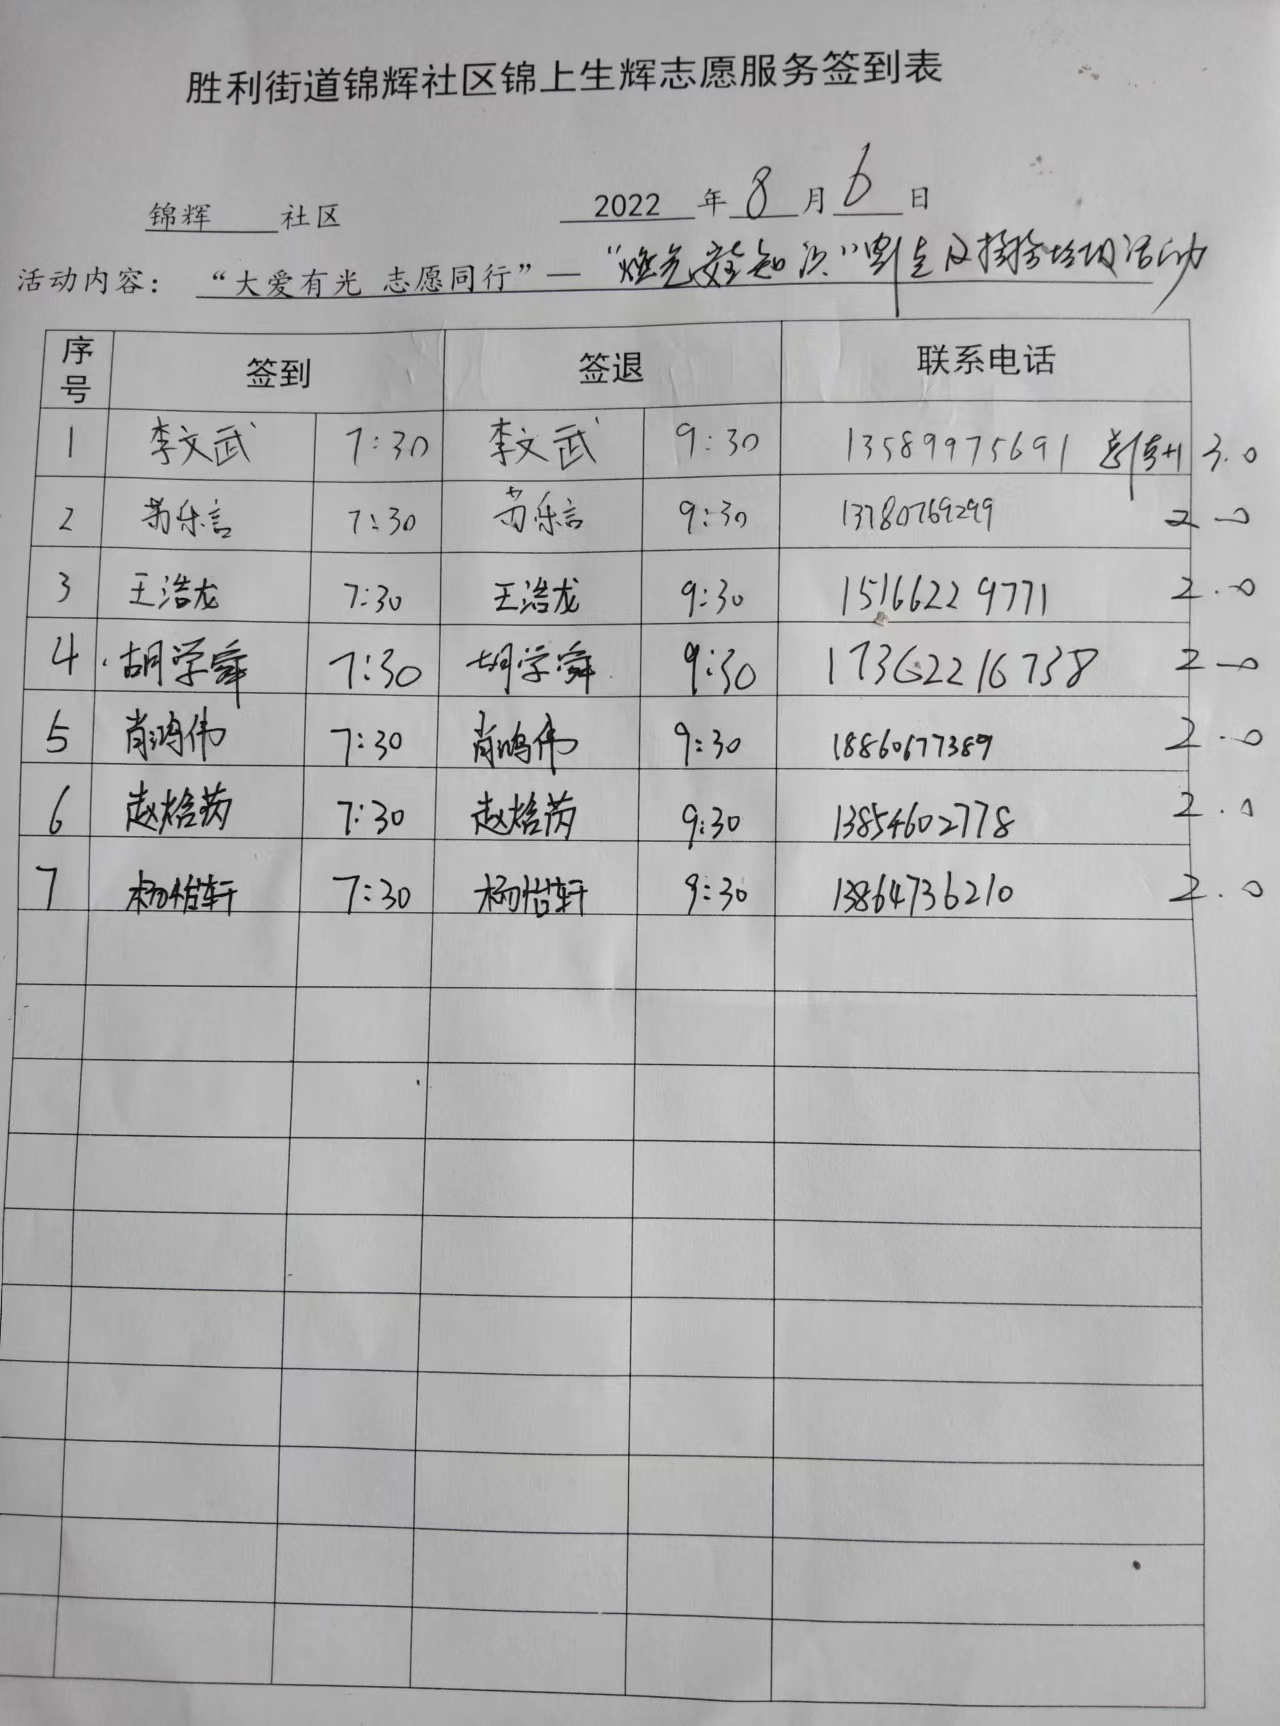 胜利街道锦辉社区锦上生辉志愿服务签到表
锦辉 社区 2022 年 8 月 6 日
活动内容： “大爱有光 志愿同行”—“燃气安全知识”学生及捡拾垃圾活动
序号 签到 签退 联系电话
1 李文武 7:30 李文武 9:30 13589975691 3.0
2 苏乐言 7:30 苏乐言 9:30 13780769299 2.0
3 王浩龙 7:30 王浩龙 9:30 15166229771 2.0
4 胡学舜 7:30 胡学舜 9:30 17362216738 2.0
5 肖鸿伟 7:30 肖鸿伟 9:30 18860677389 2.0
6 赵焓芮 7:30 赵焓芮 9:30 13854602778 2.0
7 杨怡轩 7:30 杨怡轩 9:30 13864736210 2.0